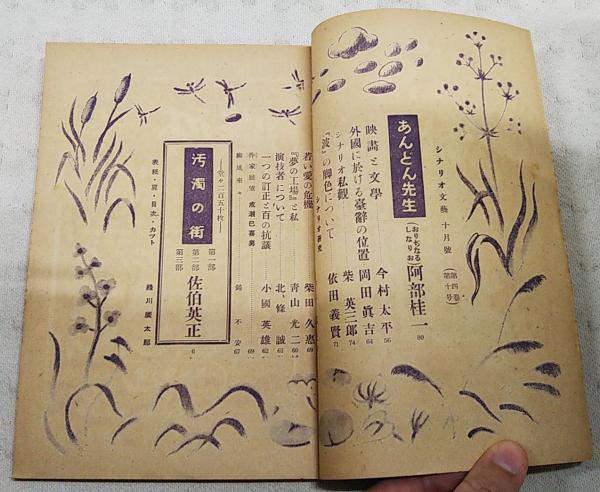 シナリオ文藝 十月號 (第四卷 第十号)
あんどん先生 (おりぢなる しなりお) 阿部桂一 80
映畫と文學 今村太平 56
外國に於ける臺辭の位置 岡田眞吉 64
シナリオ私觀 柴英三郎 74
『波』の脚色について 依田義賢 71
シナリオ硏究
若い愛の危機 柴田久惠 69
『夢の工場』と私 青山光二 60
演技者について 北條誠 61
一つの訂正と百の抗議 小國英雄 62
作家 成瀬巳喜男 69
不安 67
汚濁の街
―堂々二百五十枚―
第一部
第二部
第三部
佐伯英正 6
表紙・扉・目次・カット 綠川廣太郎